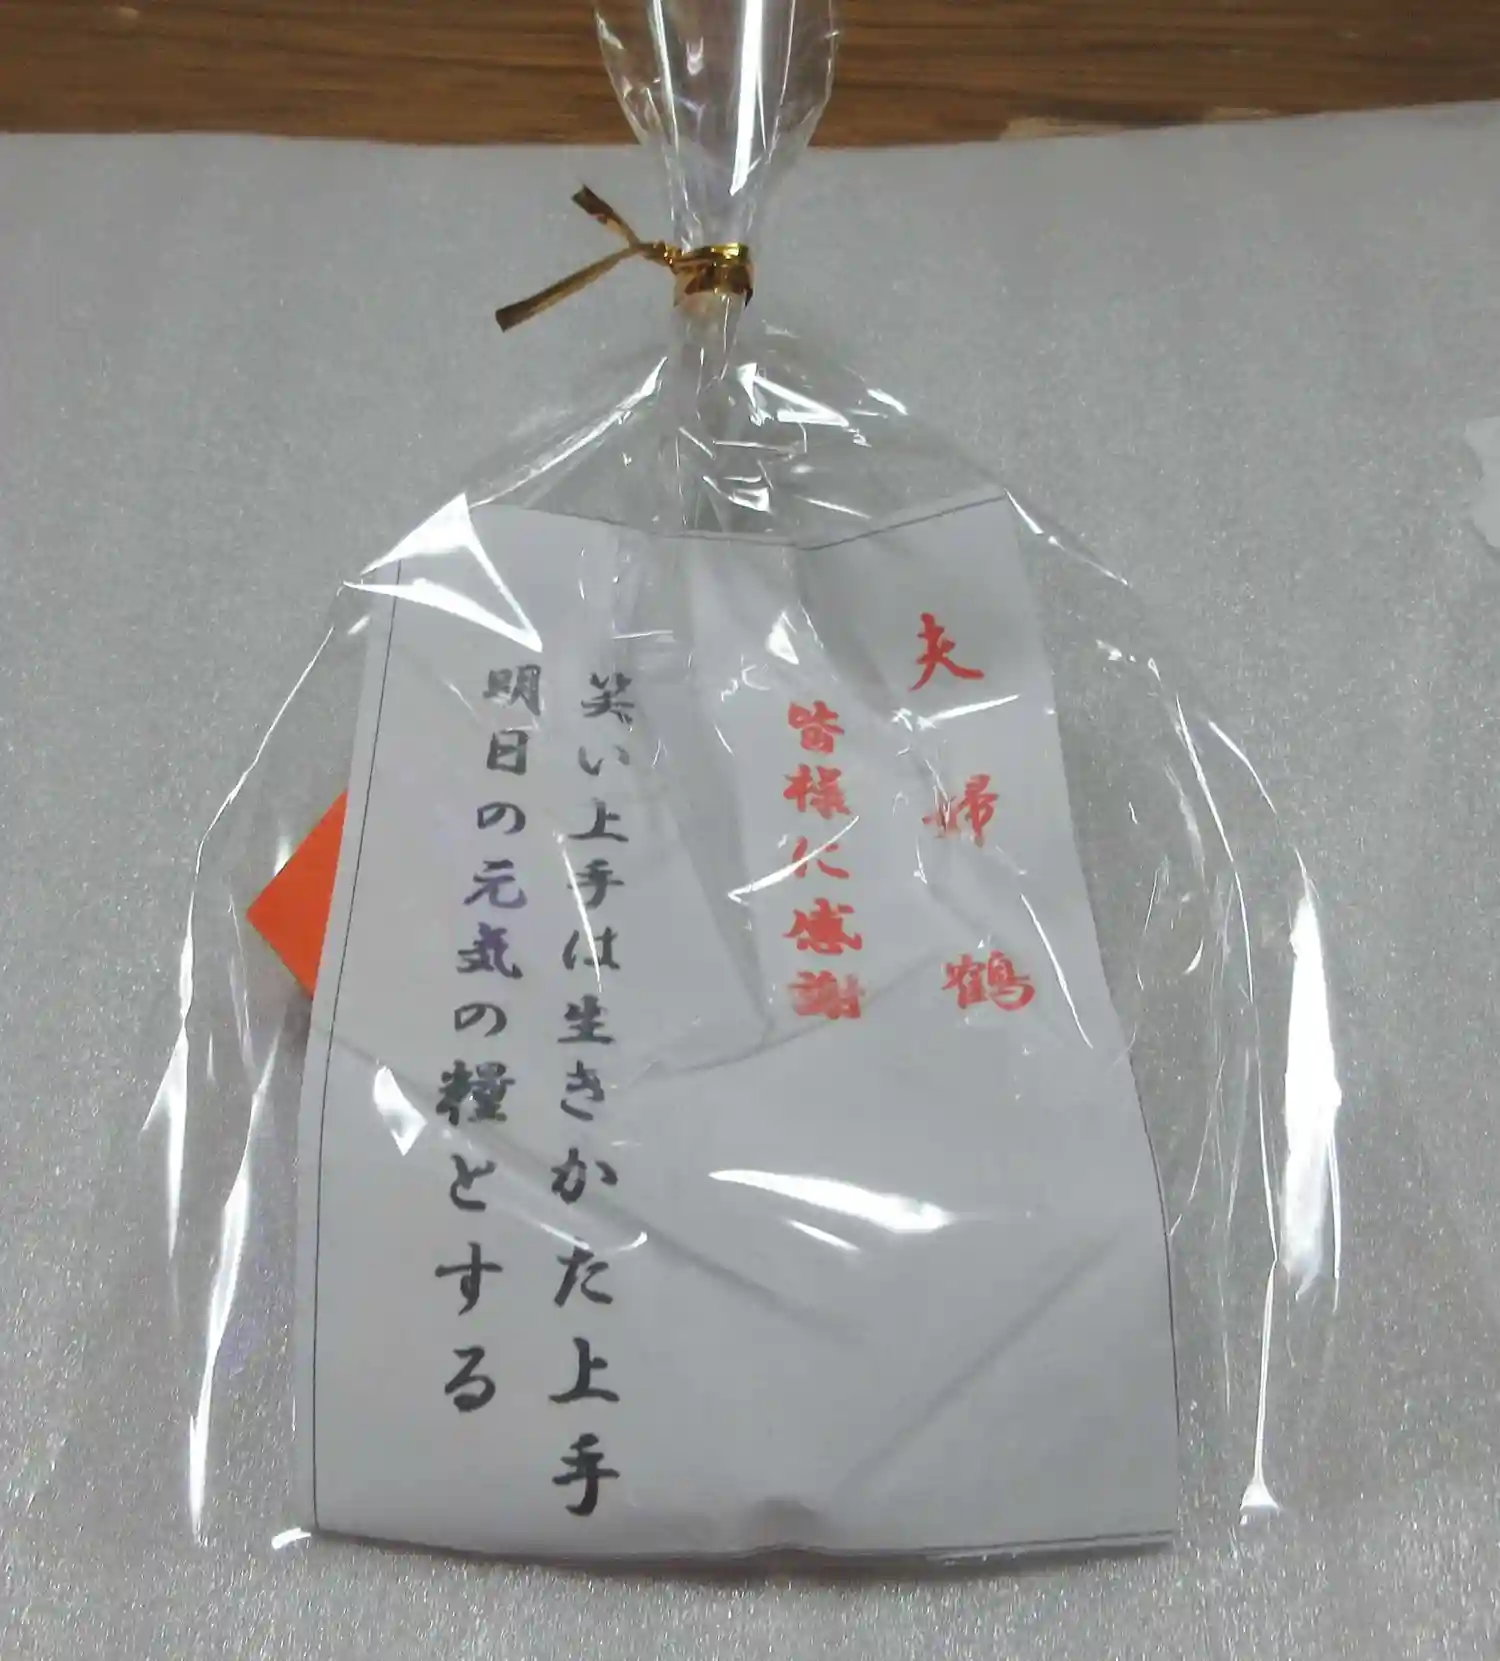 夫婦鶴
皆様に感謝
笑い上手は生きかた上手
明日の元気の糧とする